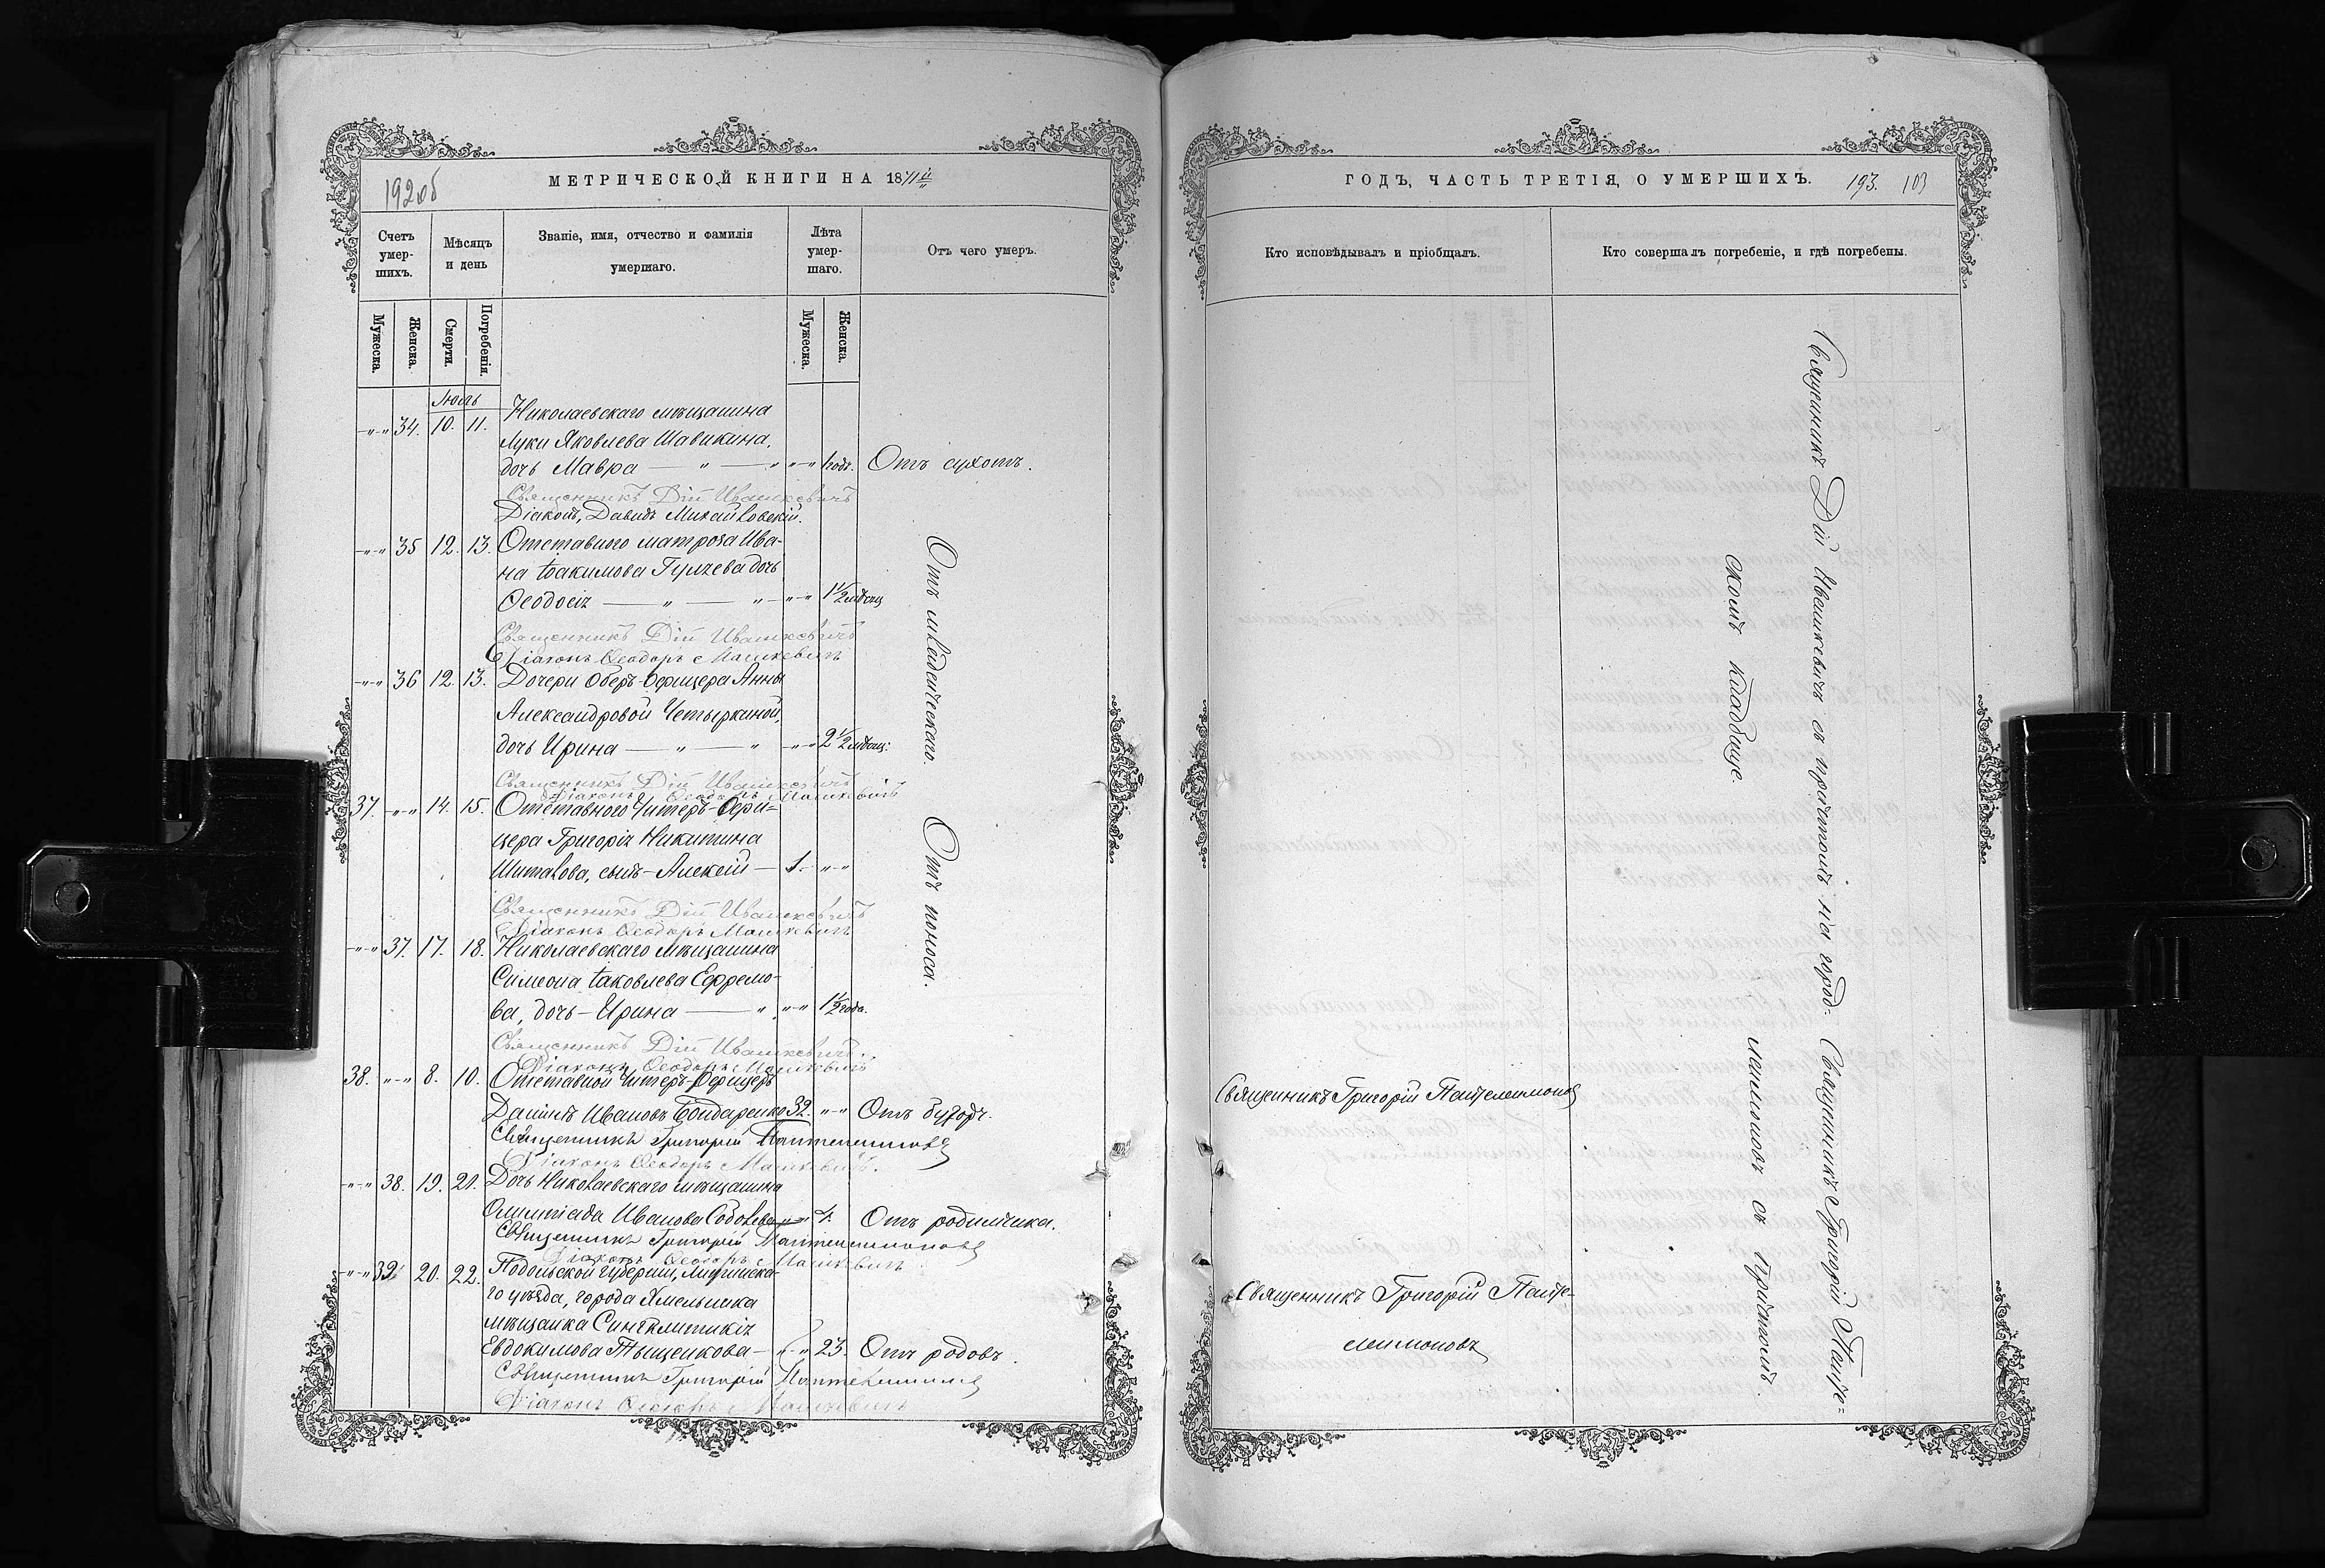 192об
МЕТРИЧЕСКОЙ КНИГИ НА 1871й
Счетъ умер-шихъ.
Мѣсяцъ и день
Званіе, имя, отчество и фамилія умершаго.
Лѣта умер-шаго.
Отъ чего умеръ.
Мужеска.
Женска.
Смерти.
Погребенія.
Мужеска.
Женска.
Іюль
34. 10. 11. Николаевскаго мѣщанина
Луки Яковлева Шавикина,
дочь Мавра — " — " 1 годъ. Отъ сухотъ.
Священникъ Дій Ивашкевичъ
Діаконъ, Давидъ Михайловскій.
35 12. 13. Отставного матроза Ива-
на Іоакимова Гулзева дочь
Ѳеодосія — " — " 1½ мѣсяц
Священникъ Дій Ивашкевичъ
Діаконъ Ѳеодоръ Машкевичъ
36 12. 13. Дочери Оберъ-Офицера Анны
Александровой Четыркиной,
дочь Ирина — " — " 2½ мѣсяц:
Священникъ Дій Ивашкевичъ
Діаконъ Ѳеодоръ Машкевичъ
37. 14. 15. Отставного Унтеръ-Офи=
цера Григорія Никитина
Шитакова, сынъ - Алексій — 1.
Священникъ Дій Ивашкевичъ
Діаконъ Ѳеодоръ Машкевичъ
37. 17. 18. Николаевскаго мѣщанина
Симеона Іаковлева Ефремо-
ва, дочь - Ирина — " 1½ года.
Священникъ Дій Ивашкевичъ
Діаконъ Ѳеодоръ Машкевичъ
Отъ младенческаго. Отъ поноса.
38. 8. 10. Отставной Унтеръ-Офицеръ
Даніилъ Ивановъ Бондаренко 32. Отъ
Священникъ Григорій Пантелеимоновъ
Діаконъ Ѳеодоръ Машкевичъ.
38. 19. 21. Дочь Николаевскаго мѣщанина
Олимпіада Иванова 4. Отъ родимчика.
Священникъ Григорій Пантелеимоновъ
Діаконъ Ѳеодоръ Машкевичъ
39. 20. 22. Подольской губерніи, Литинска-
го уѣзда, города Хмельника
мѣщанка Синклитикія
Евдокимова Тыщенкова — 23. Отъ родовъ.
Священникъ Григорій Пантелеимоновъ
Діаконъ Ѳеодоръ Машкевичъ
ГОДЪ, ЧАСТЬ ТРЕТІЯ, О УМЕРШИХЪ.
193. 103
Кто исповѣдывалъ и пріобщалъ.
Кто совершалъ погребеніе, и гдѣ погребены.
Священникъ Дій Ивашкевичъ съ причтомъ на город-
скомъ кладбище.
Священникъ Григорій Панте=
леимоновъ съ причтомъ.
Священникъ Григорій Пантелеимоновъ
Священникъ Григорій Панте-
леимоновъ